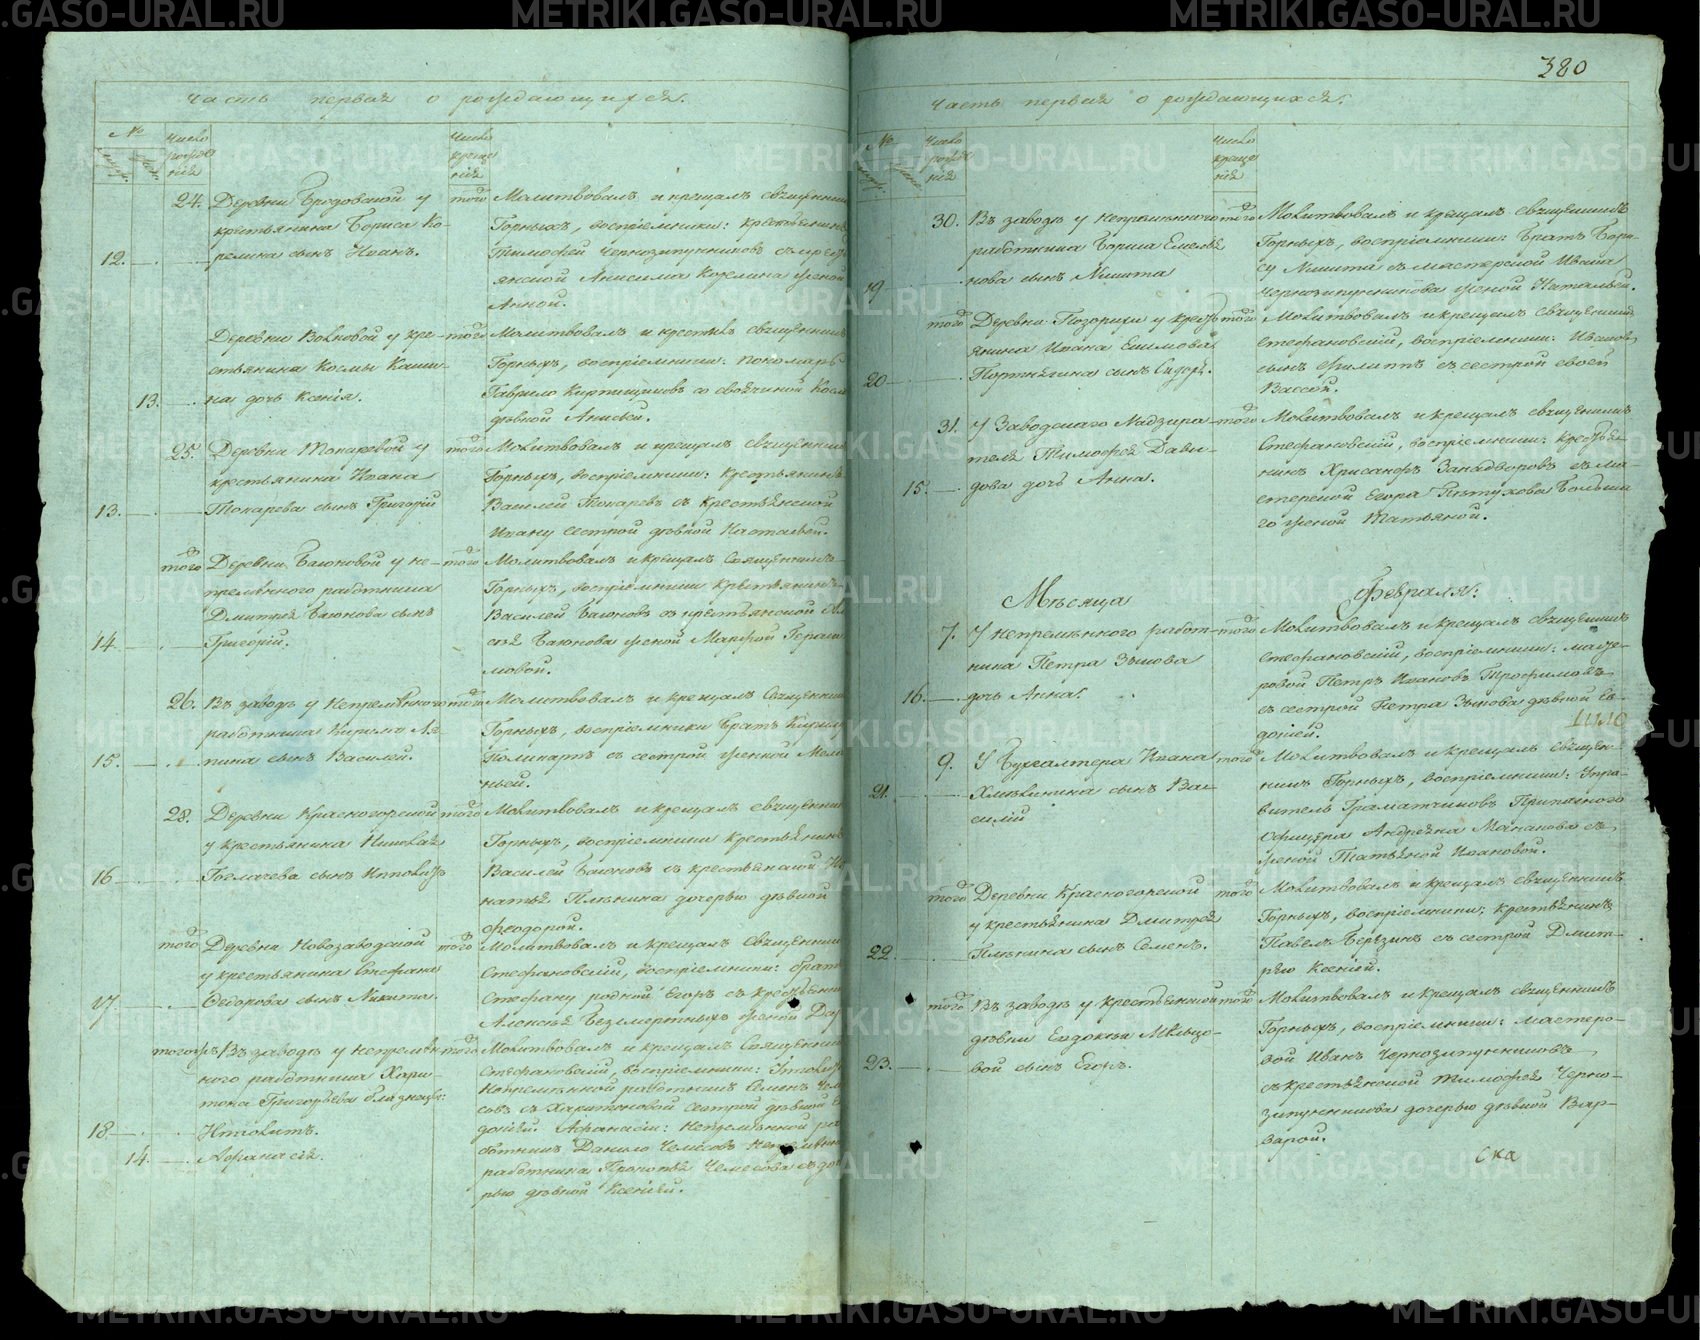 380
Часть первая о рождающихся.
№
Число рожде ния
Число креще ния
24. Деревни Бродовской у
крестьянина Бориса Ко-
релина сынъ Иванъ.
12.
того Молитвовалъ и крещалъ священник
Горныхъ, воспріемники: крестьянинъ
Тимофей Чернозипунниковъ съ крестъ
янской Анисима Корелина женой
Анной.
Деревни Волковой у кре-
стьянина Космы Каши-
на дочь Ксенія.
13.
того Молитвовалъ и крестилъ священникъ
Горныхъ, воспріемники: пономарь
Гаврило Кирпищиковъ со своячиной Косм
дѣвкой Анисьи.
25. Деревни Токаревой у
крестьянина Ивана
Токарева сынъ Григорій
13.
того Молитвовалъ и крещалъ священник
Горныхъ, воспріемники: крестьянинъ
Василей Токаревъ съ крестьянской
Ивану сестрой дѣвкой Настасьей.
того Деревни Баюновой у не-
премѣнного работника
Дмитрея Баюнова сынъ
Григорій.
14.
того Молитвовалъ и крещалъ Священникъ
Горныхъ, воспріемники крестьянинъ
Василей Баюновъ съ крестьянской
Баюнова женой Марфой Гераси
мовой.
26. Въ заводѣ у непремѣнного
работника Кирила Ля
пина сынъ Василей.
15.
того Молитвовалъ и крещалъ Священник
Горныхъ, воспріемники братъ Кирилу
съ сестрой женкой Мела
ньей.
28. Деревни Красногорской
у крестьянина Николая
Госмачева сынъ Ипполитъ
16
того Молитвовалъ и крещалъ священник
Горныхъ, воспріемники крестьянинъ
Василей Баюновъ съ крестьянской
натья Плѣнина дочерью дѣвкой
Феодорой.
того Деревни Новозаводской
у крестьянина Стефана
Федорова сынъ Никита.
17.
того Молитвовалъ и крещалъ Священник
Стефановскій, воспріемники: братъ
Стефану родной Егоръ съ крестьянин
Алексѣя Безсмертныхъ женой Дар
того Въ заводѣ у непремѣн
ного работника Хари-
тона Григорьева близнецы:
18. Ипполитъ.
14. Афанасія.
того Молитвовалъ и крещалъ Священник
Стефановскій, воспріемники: Ипполиту
Непремѣнной работникъ Семенъ Чем
совъ съ Харитоновой сестрой дѣвкой Е
докіей. Афанасіи: Непремѣнной ра
ботникъ Данило Чемесовъ Непремѣнно
работника Прокопья Чемесова съ до
рью дѣвкой Ксеніей.
Часть первая о рождающихся.
№
Число рожде ния
Число креще ния
30. Въ заводѣ у непремѣнного
работника Бориса Емелья
нова сынъ Никита
19
того Молитвовалъ и крещалъ священникъ
Горныхъ, воспріемники: братъ Бори-
су Никита съ мастерской Ивана
Чернозипунникова женой Натальей.
того Деревни Позорихи у кресть
янина Ивана Екимова
Портнягина сынъ Сидоръ.
20
того Молитвовалъ и крещалъ священникъ
Стефановскій, воспріемники: Ивановъ
сынъ Филиппъ съ сестрой своей
Вассой.
31. У Заводскаго Надзира-
теля Тимофея Дави-
дова дочь Анна.
15.
того Молитвовалъ и крещалъ священникъ
Стефановскій, воспріемники: кресть-
нинъ Хрисанфъ Западворовъ съ ма-
стерской Егора Пѣтухова больша
го женой Татьяной.
Мѣсяца Февраля:
7. У непремѣнного работ-
ника Петра Зыкова
дочь Анна.
16.
того Молитвовалъ и крещалъ священникъ
Стефановскій, воспріемники: масте-
ровой Петръ Ивановъ Трофимовъ
съ сестрой Петра Зыкова дѣвкой Ев-
докіей.
9. У Бухгалтера Ивана
Хмѣлинина сынъ Ва-
силій
21.
того Молитвовалъ и крещалъ священ-
никъ Горныхъ, воспріемники: Упра-
витель Граматчиковъ Приписного
Офицера Андреяна Манакова съ
женой Татьяной Ивановой.
того Деревни Красногорской
у крестьянина Дмитрея
Плѣнина сынъ Семенъ.
22.
того Молитвовалъ и крещалъ священникъ
Горныхъ, воспріемники: крестьянинъ
Павелъ Березинъ съ сестрой Дмит-
рію Ксеніей.
того Въ заводѣ у крестьянской
дѣвки Евдокеи Мѣльцо-
вой сынъ Егоръ.
23.
того Молитвовалъ и крещалъ священникъ
Горныхъ, воспріемники: мастеро-
вой Иванъ Чернозипунниковъ
съ крестьянской Тимофея Черно-
зипунникова дочерью дѣвкой Вар-
варой.
Ска